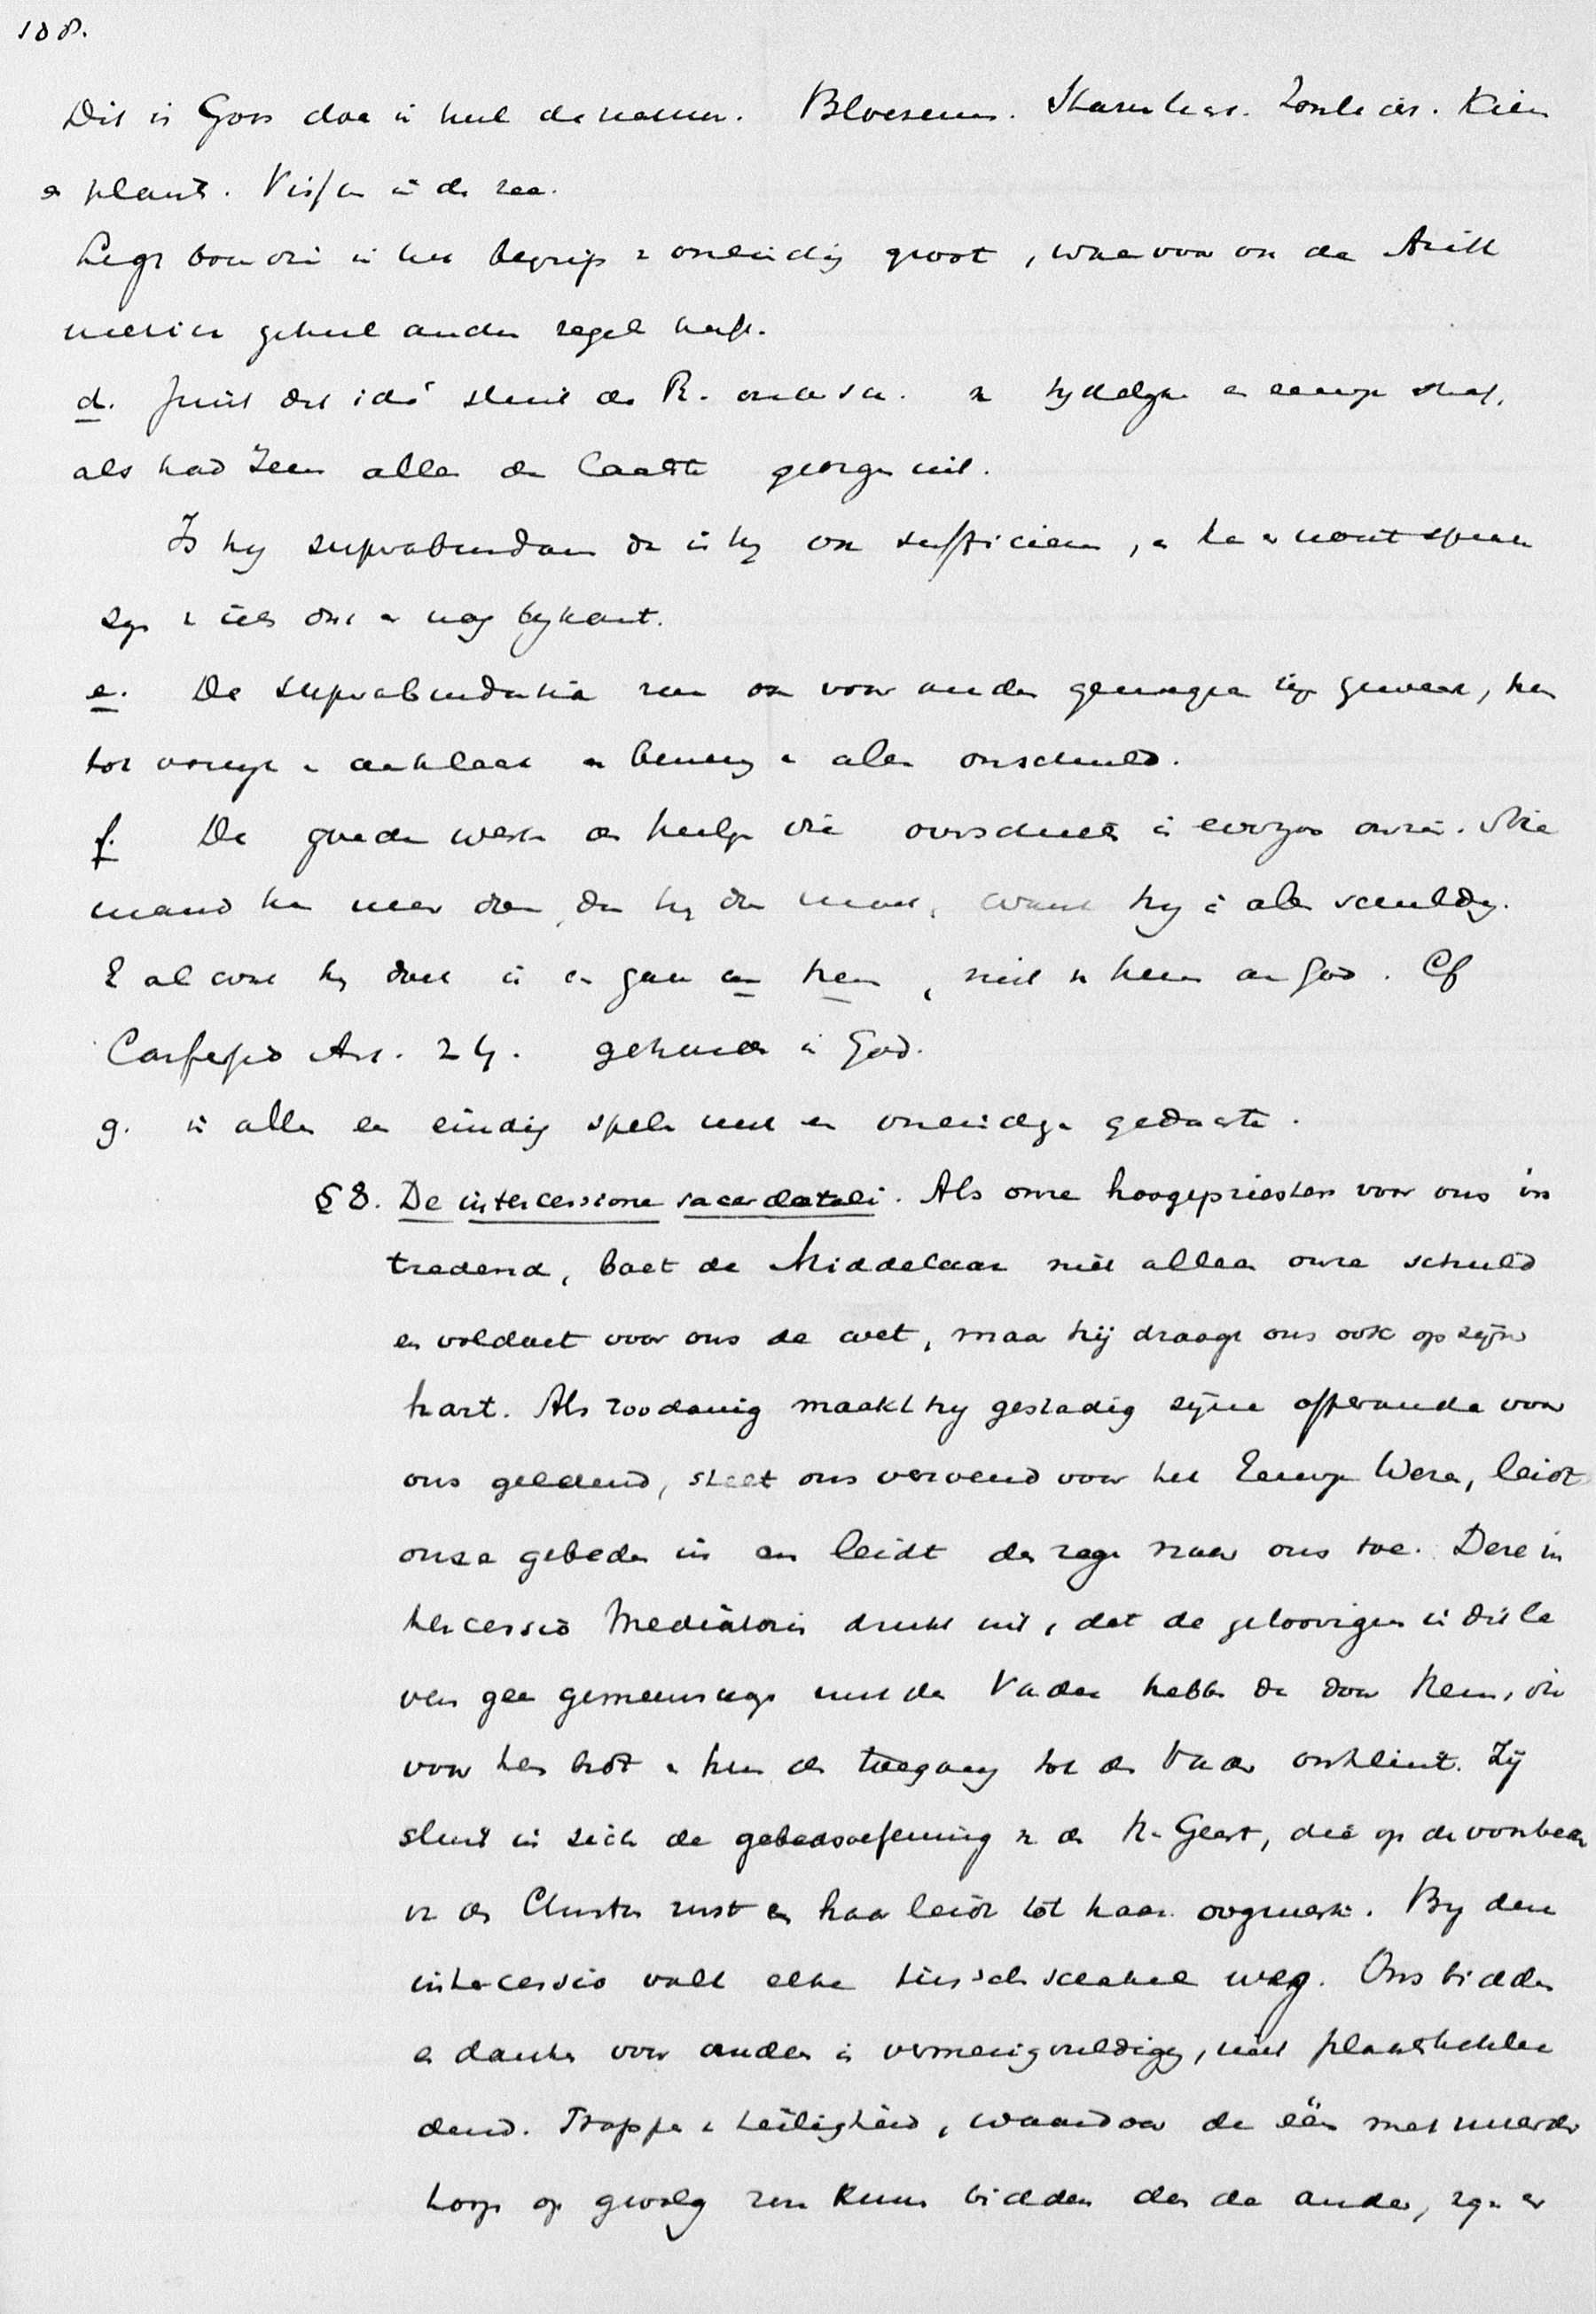 108.
Dit is Gods doen in heel de natuur. Bloesems. Kiem
en plant. Visschen in de zee.
Ligt bovendien in het begrip v oneindig groot, waarvoor de Arith
metica geheel ander regel heeft.
d. Juist dit idé sluit de R. v tijdelijke en eeuwige straf,
als had Jezus alleen de laatste gedragen uit.
Is hij superabundans dan is hij ook sufficiens, en kan er nooit sprake
zijn v iets dat er nog bijkomt.
e. De superabundantia zou ook voor andere genoegen zijn geweest, hen
tot v en v allen onschuld.
f. De goede werken der heiligen die overschieten is evenzoo onzin. Nie
mand kan meer doen, dan hij doen moet, want hij is alles schuldig.
E al wat hij doet is een gave aan hem, niet v hem aan God. Cf
Confessio Art. 24. gehouden in God.
g. is alles een eindig spelen met een oneindige gedachte.
§ 8. De intercessione sacerdotali. Als onze hoogepriester voor ons in
tredend, boet de Middelaar niet alleen onze schuld
en voldoet voor ons de wet, maar hij draagt ons ook op zijn
hart. Als zoodanig maakt hij gestadig zijne offerande voor
ons geldend, stelt ons verzoend voor het Eeuwige Wezen, leidt
onze gebeden in en leidt den zegen naar ons toe. Deze in
tercessio Mediatoris drukt uit, dat de geloovigen in dit le
ven geen gemeenschap met den Vader hebben dan door Hem, die
voor hen bidt en hun den toegang tot den Vader ontsluit. Zij
sluit in zich de gebedsoefening v den H. Geest, die op de voorbede
v den Christus rust en haar leidt tot haar oogmerk. Bij deze
intercessio valt elke tusschenschakel weg. Ons bidden
en danken voor anderen is vermenigvuldigend, niet plaatsbeklee
dend. Trappen v heiligheid, waardoor de één met meerder
hoop op gevolg zou kunnen bidden dan de ander, zijn er